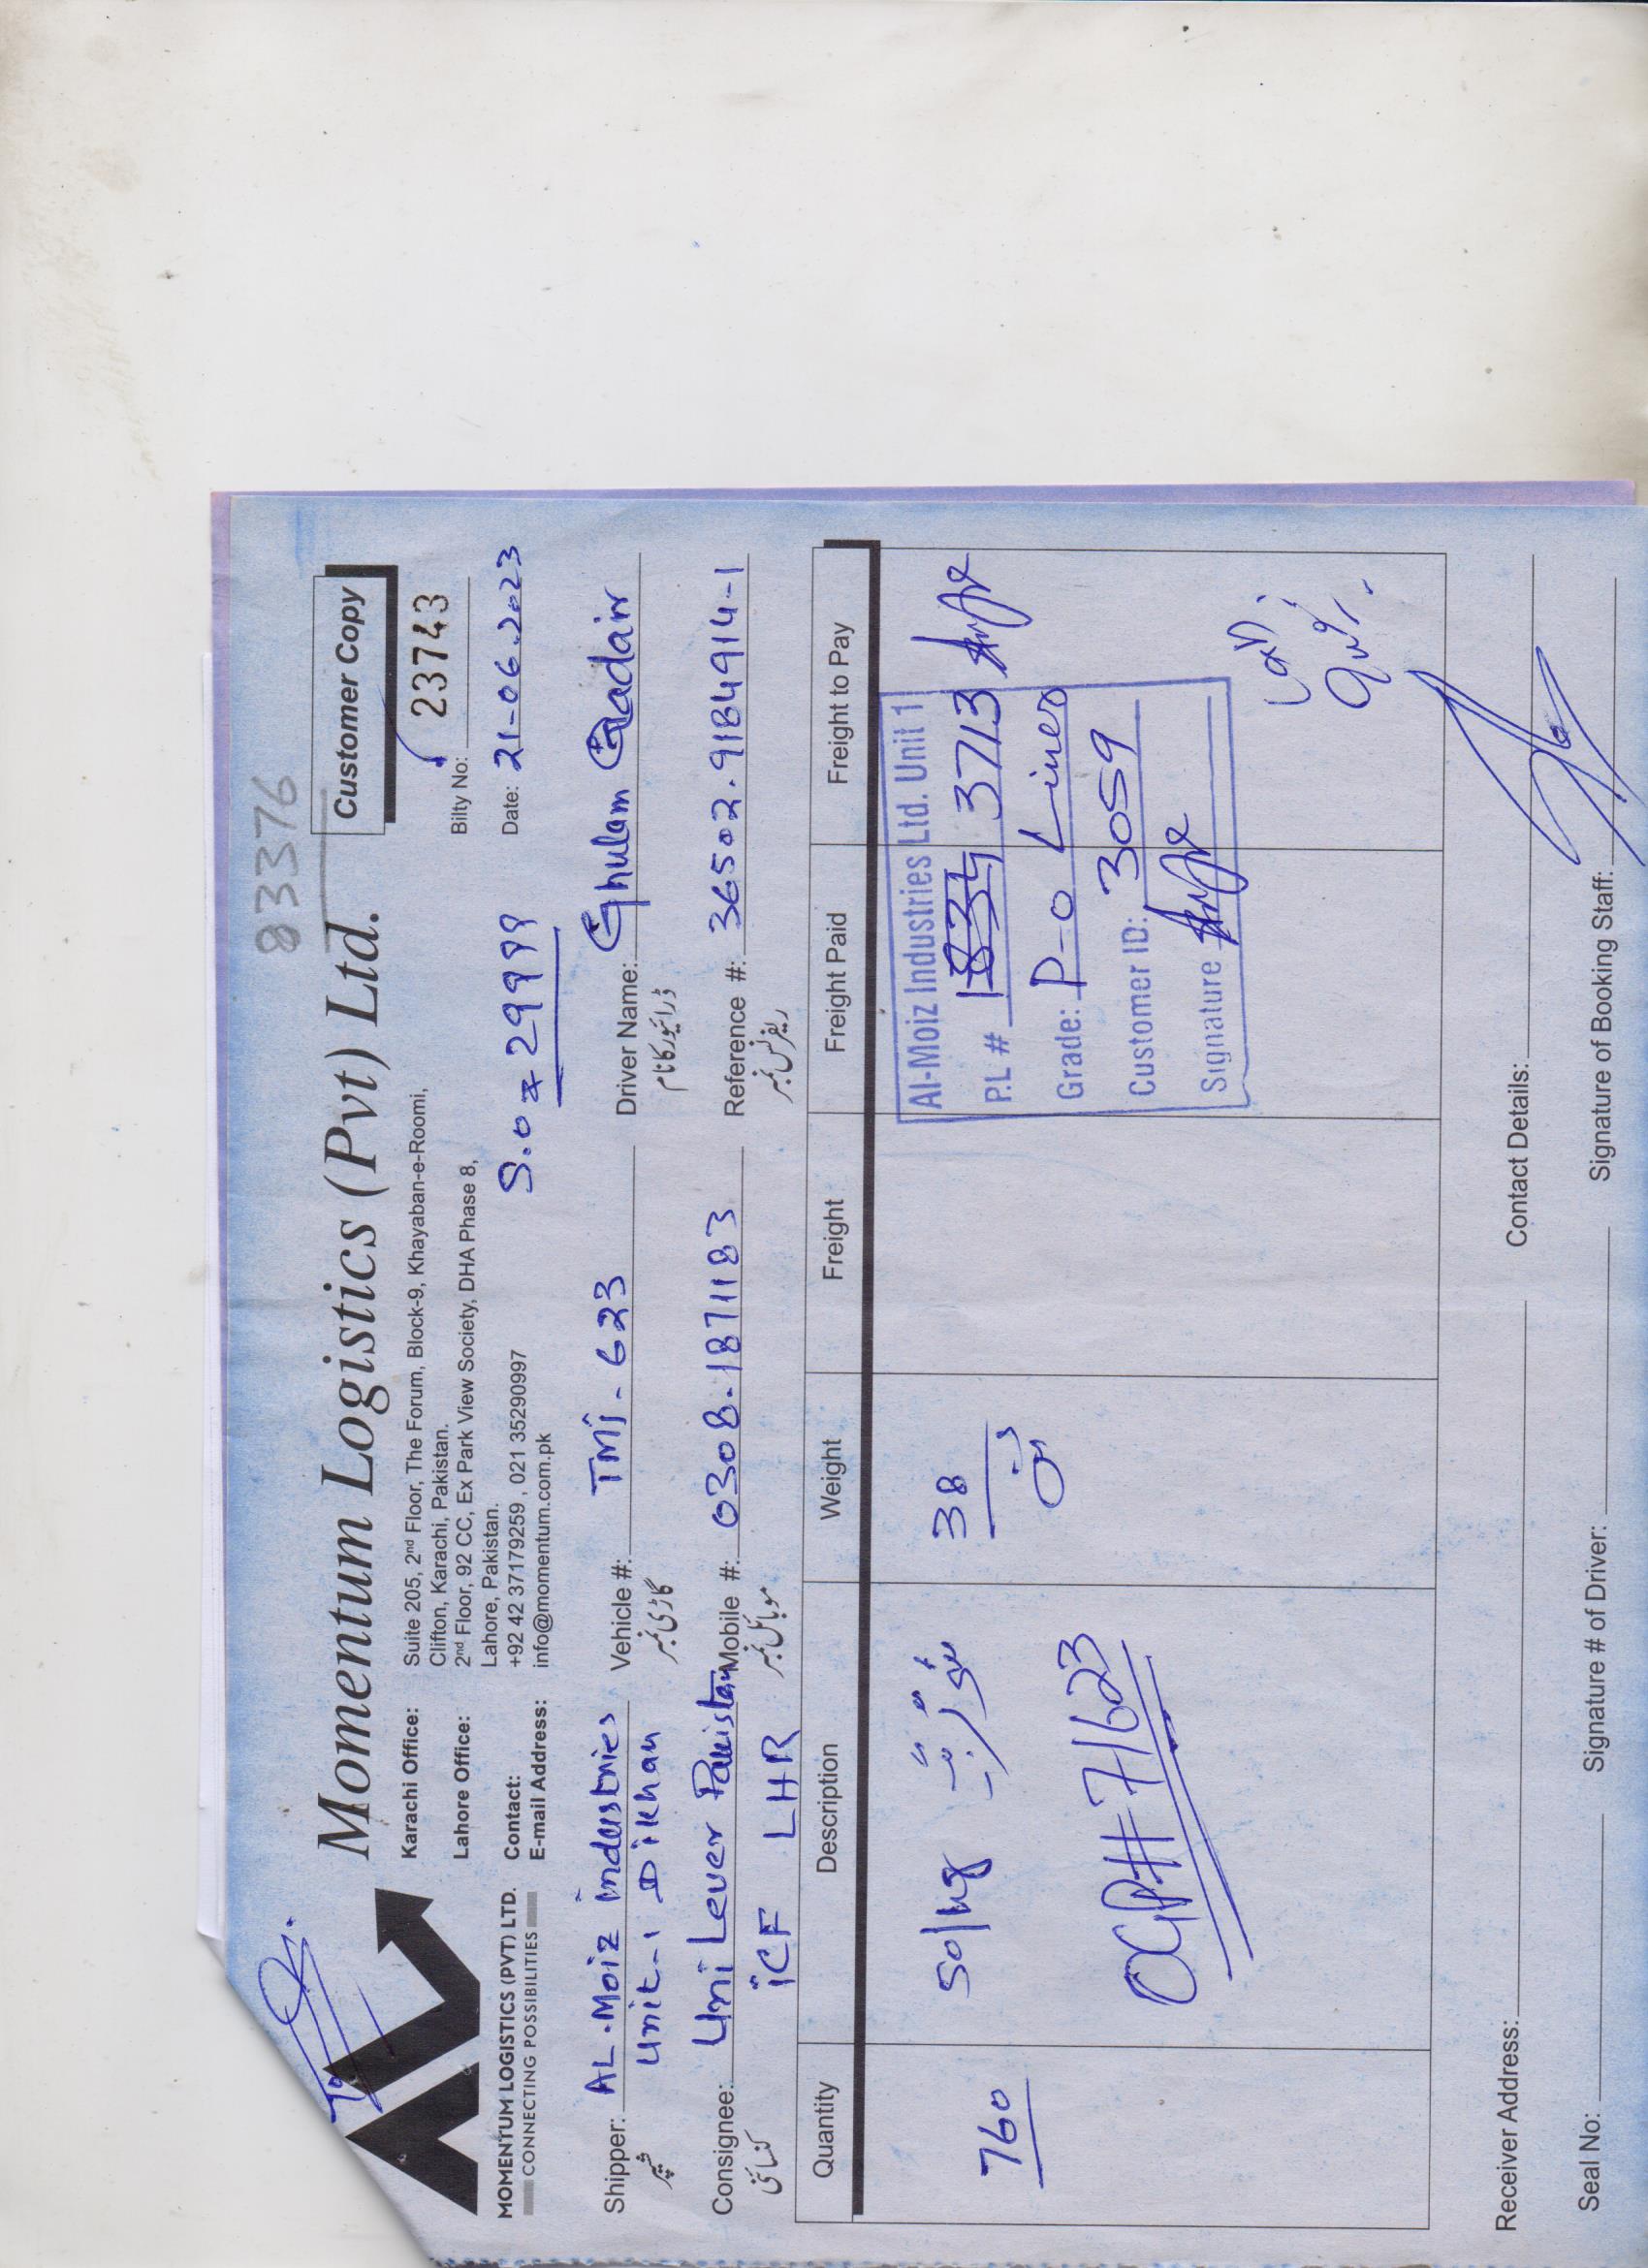 83376
Momentum Logistics (Pvt) Ltd.
Customer Copy
MOMENTUM LOGISTICS (PVT) LTD.
CONNECTING POSSIBILITIES
Karachi Office: Suite 205, 2nd Floor, The Forum, Block-9, Khayaban-e-Roomi,
Clifton, Karachi, Pakistan.
Lahore Office: 2nd Floor, 92 CC, Ex Park View Society, DHA Phase 8,
Lahore, Pakistan.
Contact: +92 42 37179259 , 021 35290997
E-mail Address: info@momentum.com.pk
Bilty No: 23743
Date: 21-06.2023
S.O # 29999
Shipper: AL.Moiz industries
شپر
Unit-1 Dikhan
Vehicle #: TMj-623
گاڑی نمبر
Driver Name: Ghulam Qadair
ڈرائیور کا نام
Consignee: Uni Lever Pakistan
کنسائنی
iCF LHR
Mobile #: 0308.1871183
موبائل نمبر
Reference #: 36502.9184914-1
ریفرنس نمبر
Quantity Description Weight Freight Freight Paid Freight to Pay
760
50/kg
38
ٹن
OGP#71623
Al-Moiz Industries Ltd. Unit 1
P.L # 3713
Grade: P-0 Liner
Customer ID: 3059
Signature
Receiver Address: Contact Details:
Seal No: Signature # of Driver: Signature of Booking Staff: